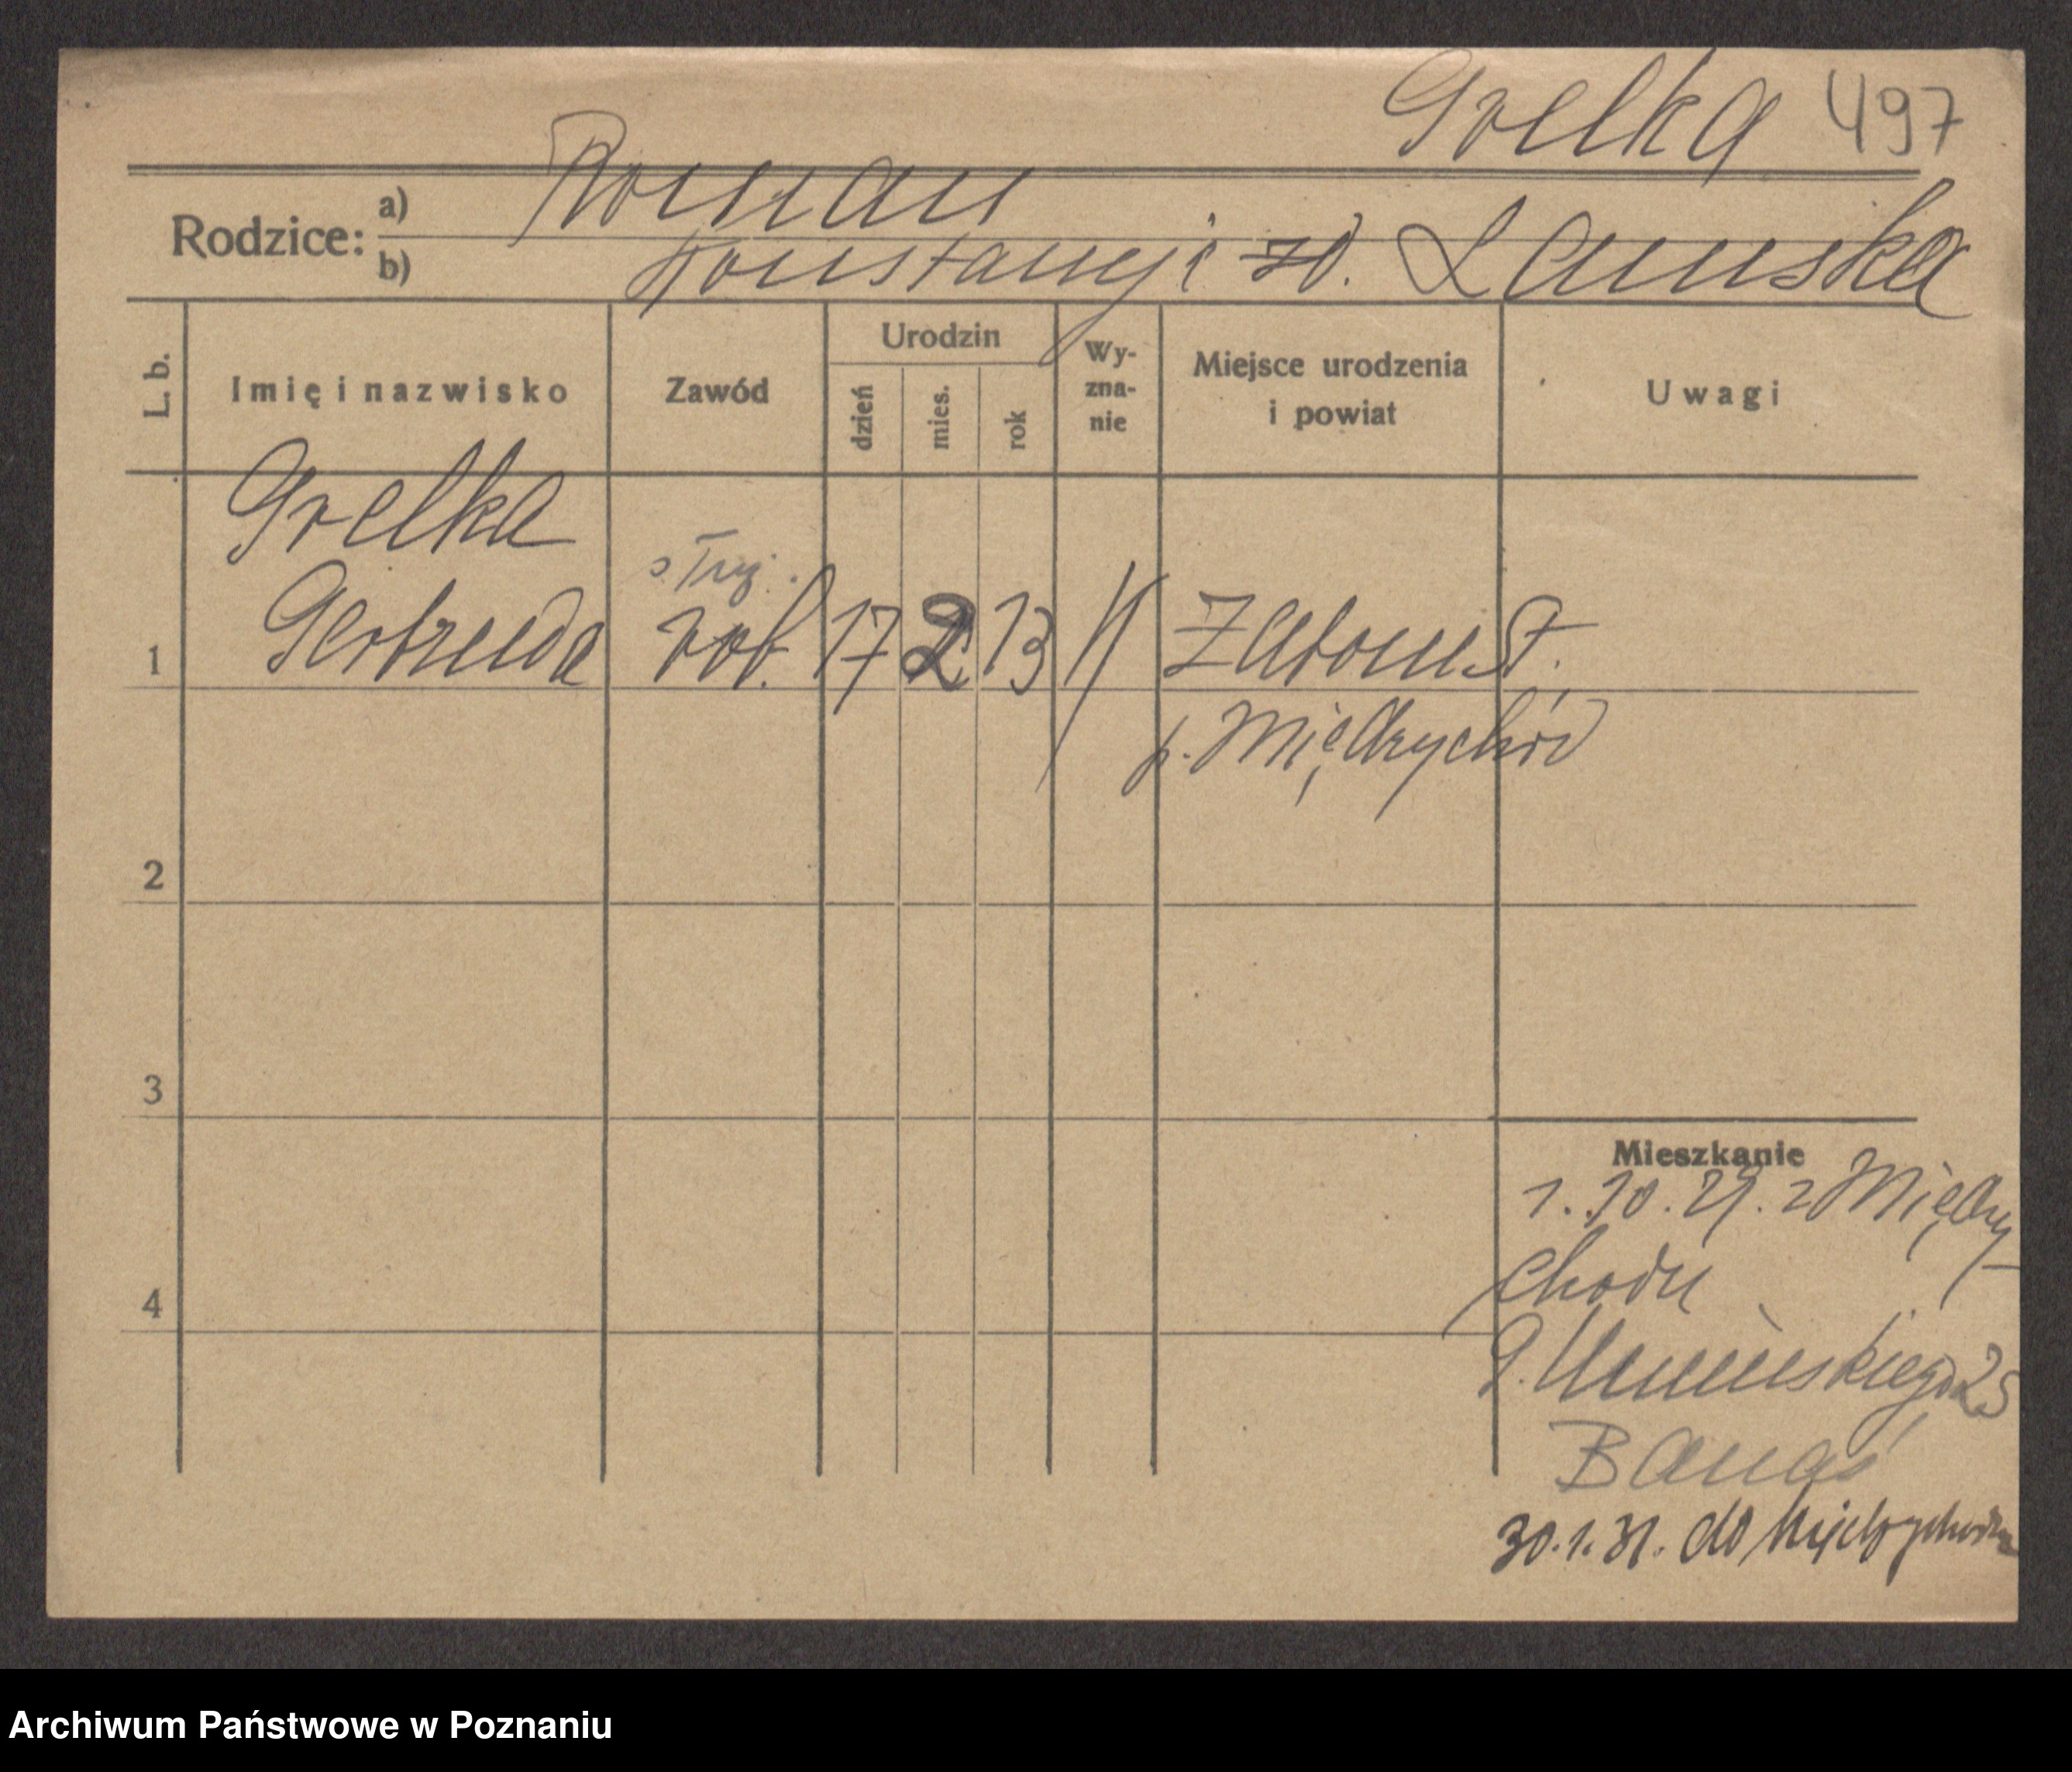 Grelka 497
Rodzice: a) Roman
b) Konstancji zd. Lamuska
L. b. Imię i nazwisko Zawód Urodzin dzień mies. rok Wyznanie Miejsce urodzenia i powiat Uwagi
Grelka
służ.
1 Gertruda rob. 17 2 13 Zatom St.
p. Międzychód
2
3
Mieszkanie
1. 10. 29. z Między
chodu
4
25
Banaś
30.1.31. do Międzychodu
Archiwum Państwowe w Poznaniu